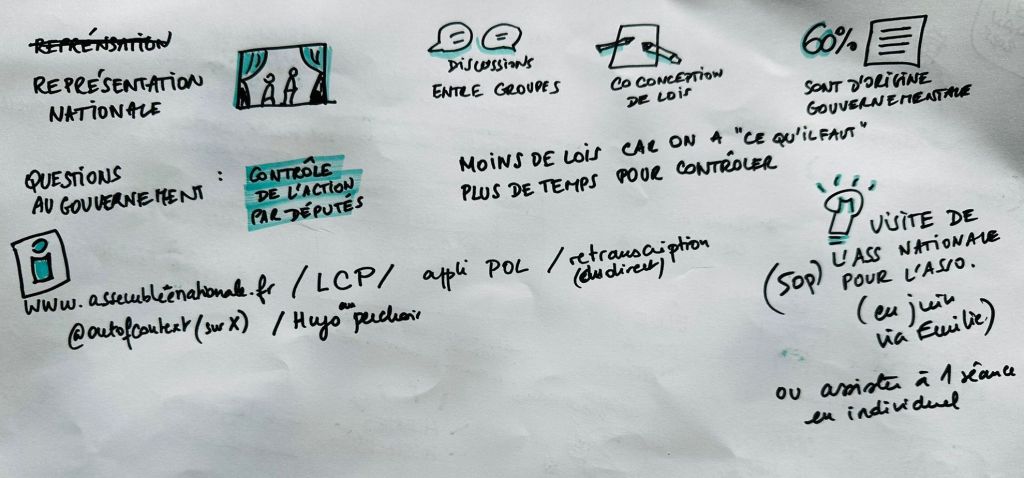 REPRÉNSATION
REPRÉSENTATION
NATIONALE
DISCUSSIONS
ENTRE GROUPES
CO CONCEPTION
DE LOIS
60%
SONT D'ORIGINE
GOUVERNEMENTALE
QUESTIONS
AU GOUVERNEMENT :
CONTRÔLE
DE L'ACTION
PAR DÉPUTÉS
MOINS DE LOIS CAR ON A "CE QU'IL FAUT"
PLUS DE TEMPS POUR CONTRÔLER
i
www.assembléenationale.fr / LCP / appli POL / retranscription
(du direct)
@outofcontext (sur X) / Hugo au perchoir
VISITE DE
L'ASS NATIONALE
(50p) POUR L'ASSO.
(en juin
via Emilie)
ou assister à 1 séance
en individuel